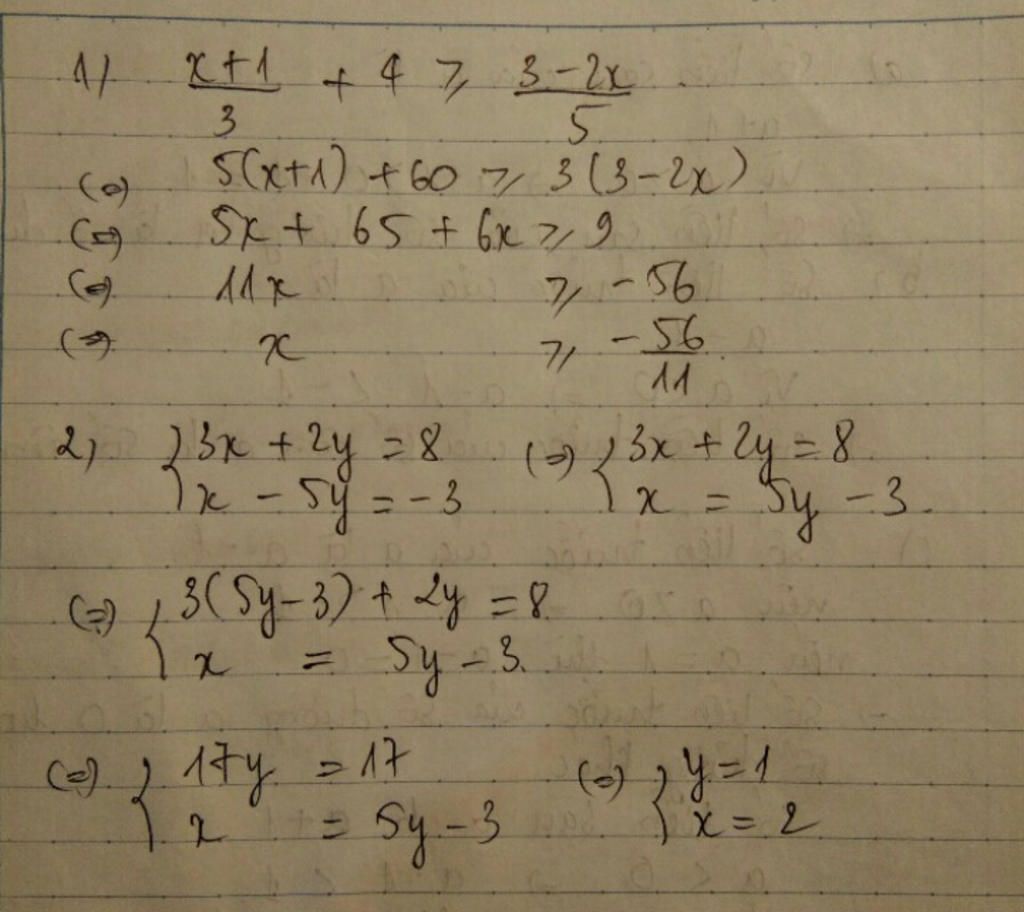 1) (x+1)/3 + 4 ≥ (3-2x)/5
(⇔) 5(x+1) + 60 ≥ 3(3-2x)
(⇔) 5x + 65 + 6x ≥ 9
(⇔) 11x ≥ -56
(⇔) x ≥ -56/11
2) { 3x + 2y = 8 (⇔) { 3x + 2y = 8
x - 5y = -3 x = 5y - 3.
(⇔) { 3(5y-3) + 2y = 8
x = 5y - 3.
(⇔) { 17y = 17 (⇔) { y = 1
x = 5y - 3 x = 2